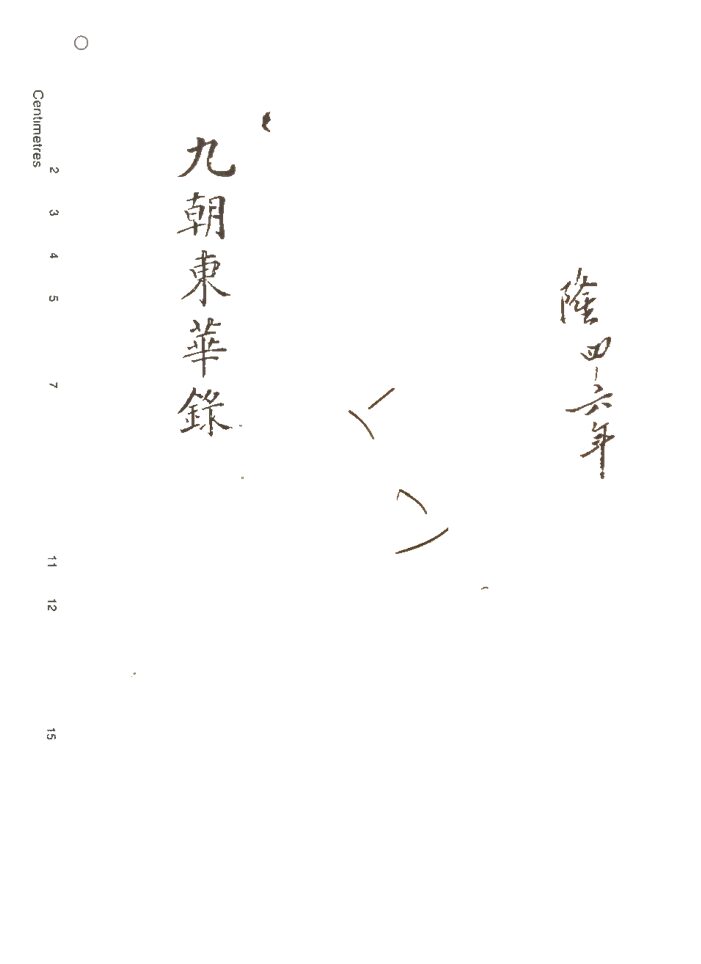 隆四-六年
九朝東華錄
Centimetres
2
3
4
5
7
11
12
15